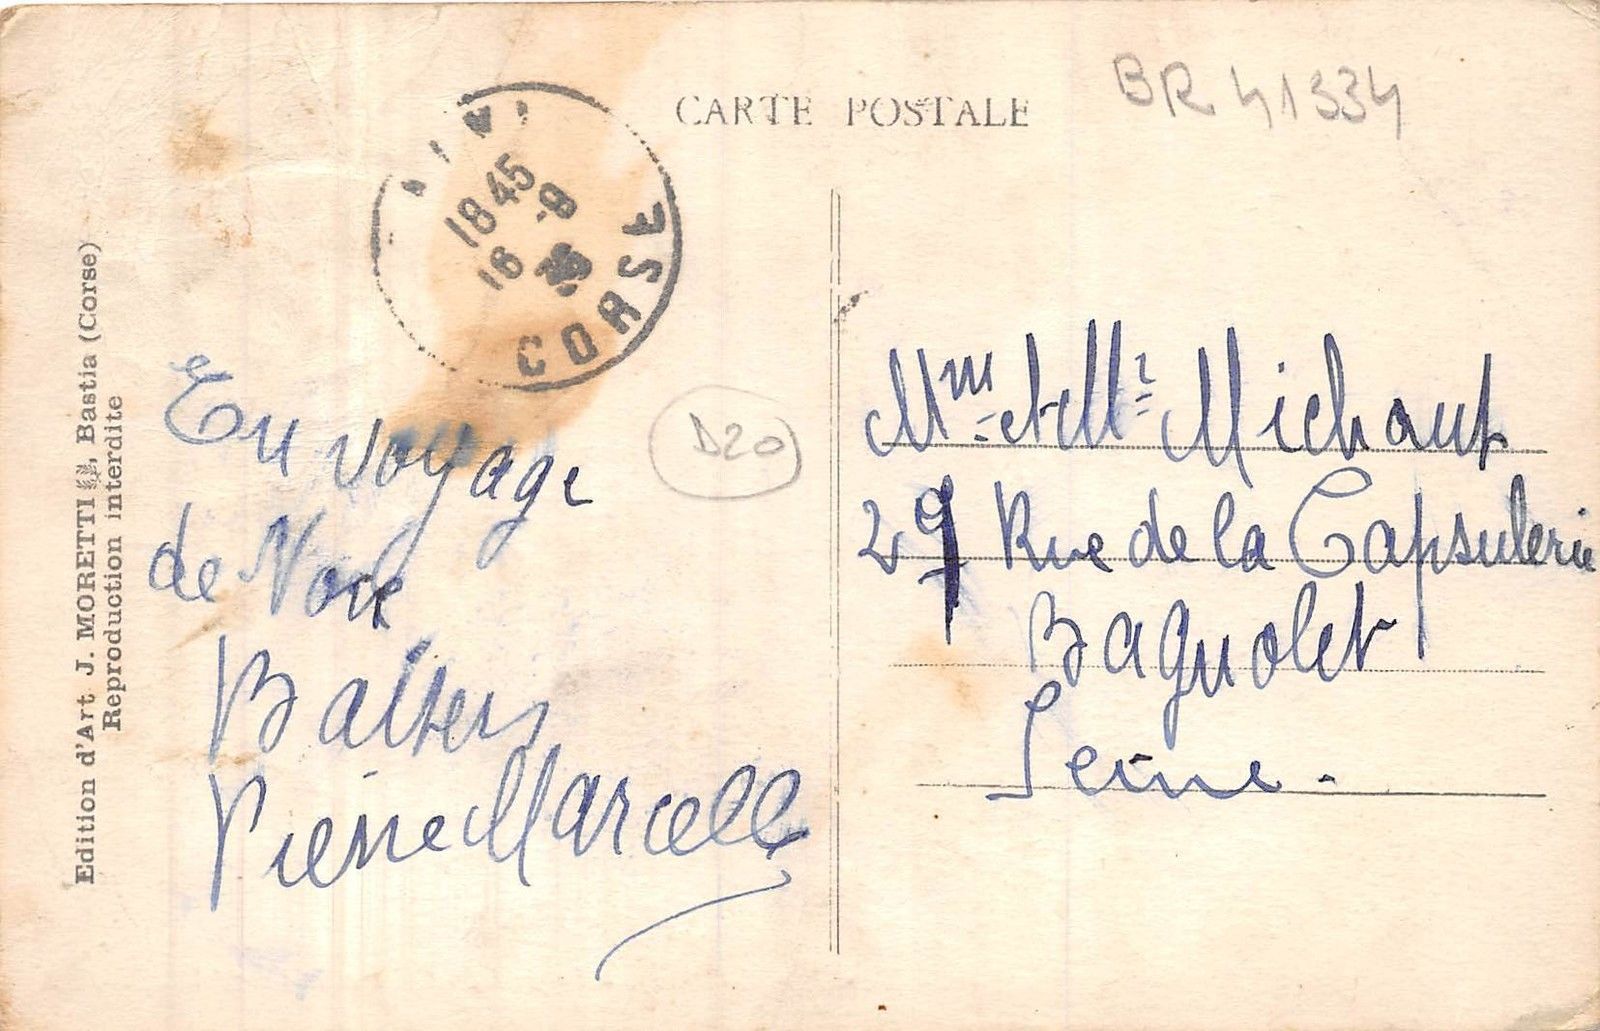 CARTE POSTALE
BR 41334
18 45
16 -9
CORSE
D20
Edition d'Art J. MORETTI, Bastia (Corse)
Reproduction interdite
En voyage
de Noce
Baisers
Pierre Marcelle
Mme et Mr Michaut
29 Rue de la Capsulerie
Bagnolet
Seine.